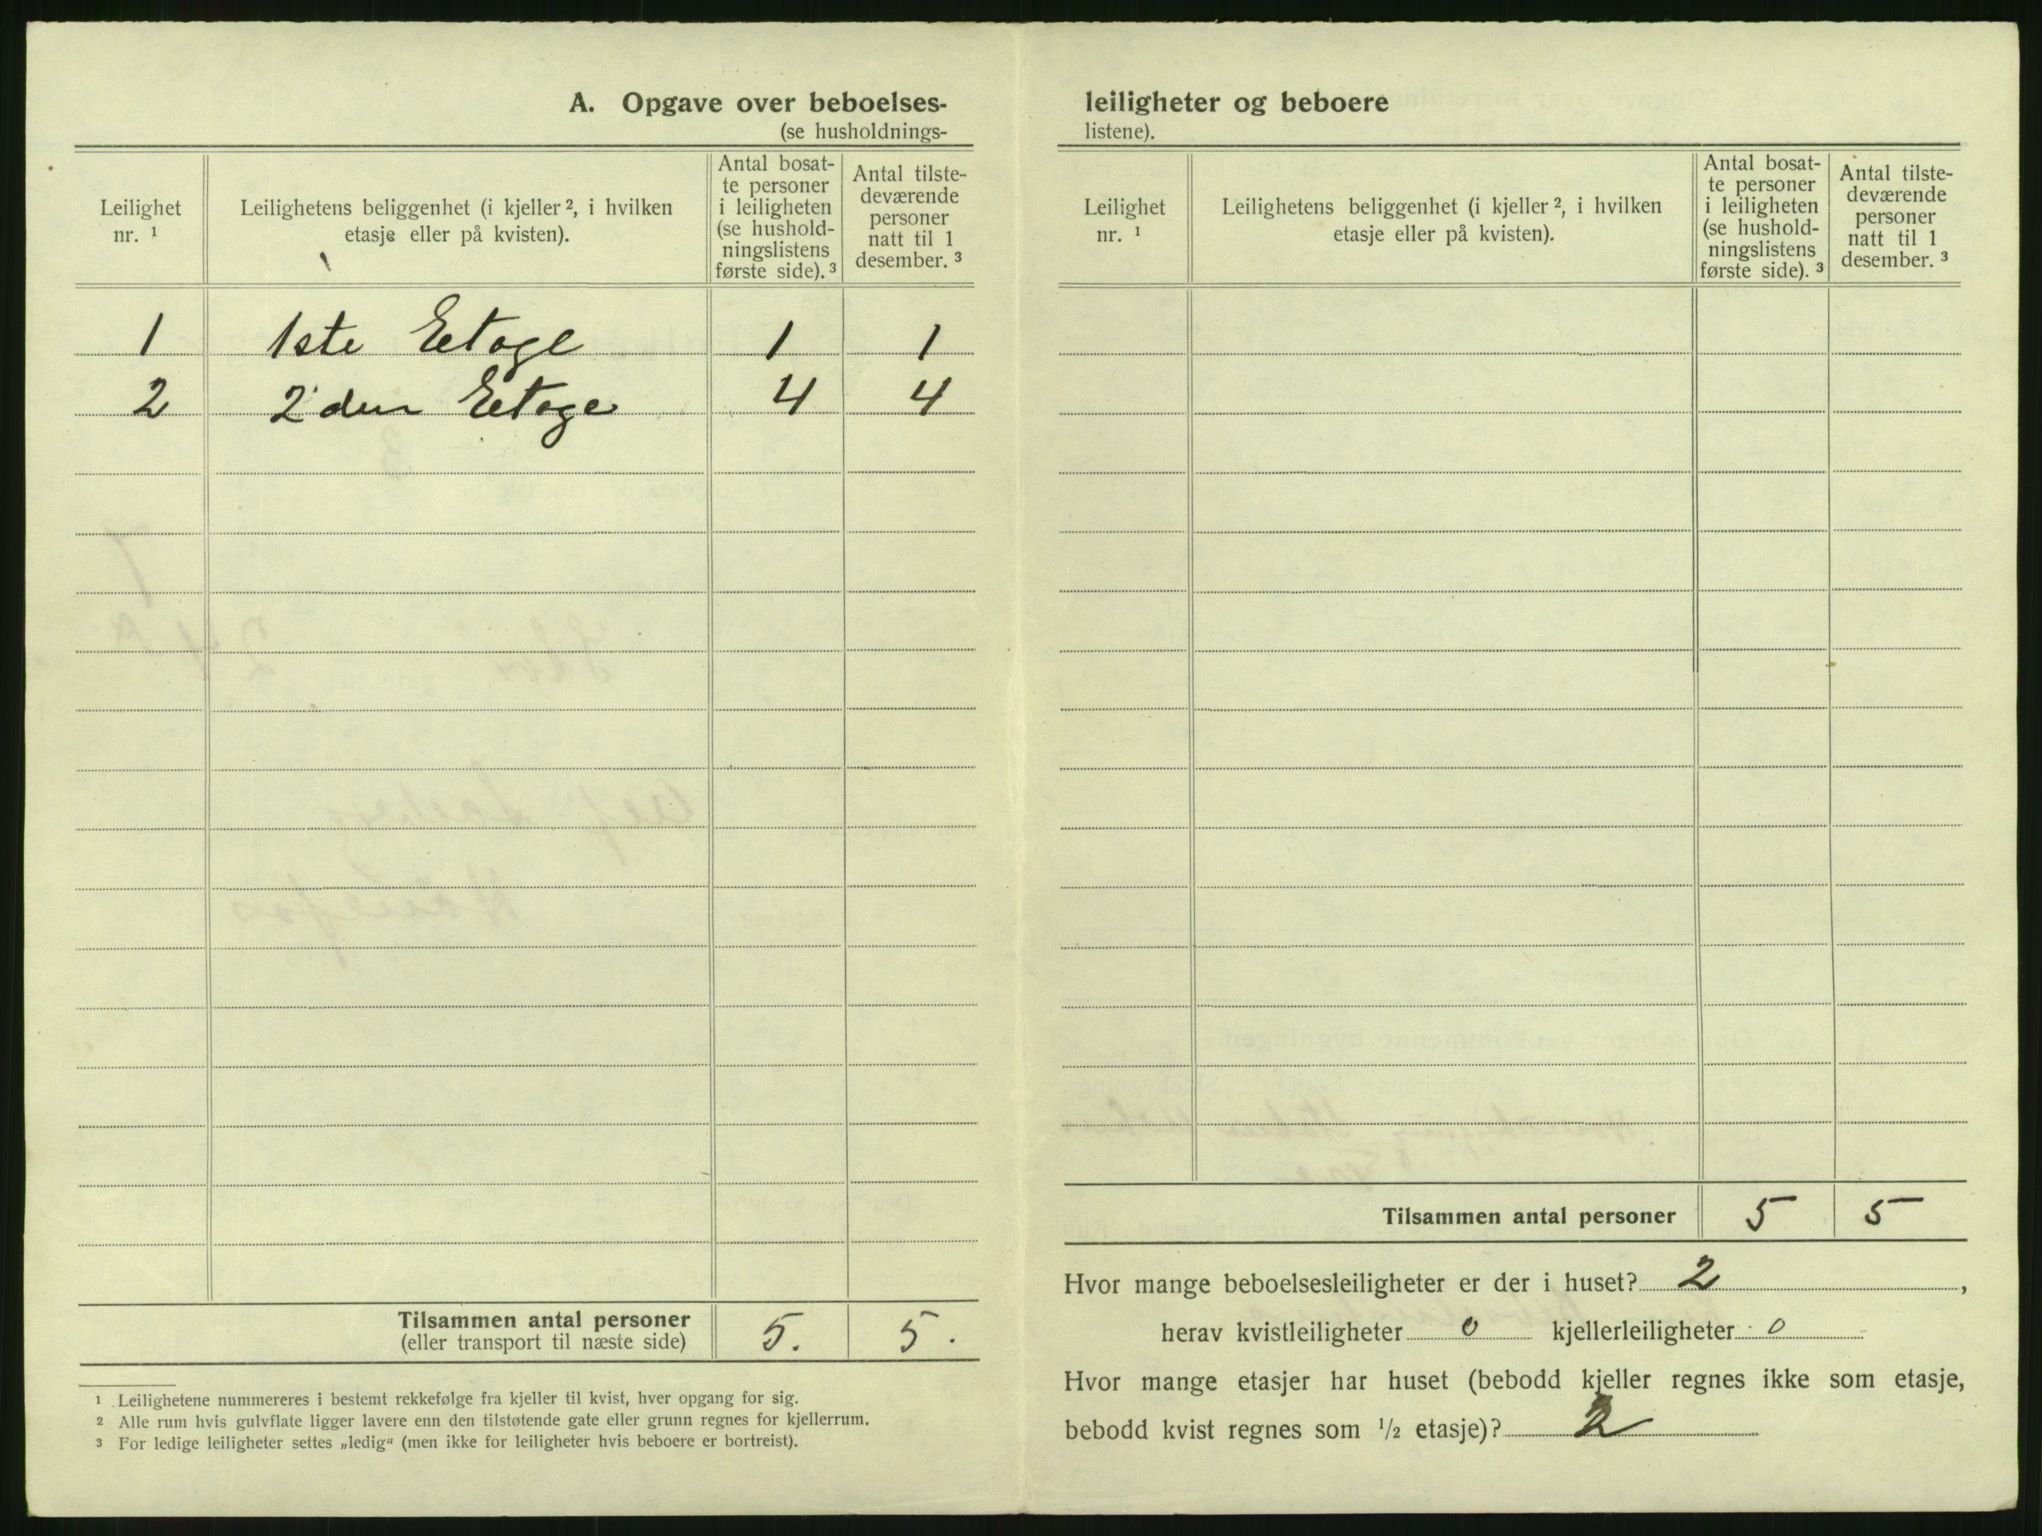 A. Opgave over beboelses-
(se husholdnings-
Leilighet
nr. ¹
Leilighetens beliggenhet (i kjeller ², i hvilken
etasje eller på kvisten).
Antal bosat-
te personer
i leiligheten
(se hushold-
ningslistens
første side). ³
Antal tilste-
deværende
personer
natt til 1
desember. ³
1 1ste Eetage 1 1
2 2den Eetage 4 4
Tilsammen antal personer 5. 5.
(eller transport til næste side)
¹ Leilighetene nummereres i bestemt rekkefølge fra kjeller til kvist, hver opgang for sig.
² Alle rum hvis gulvflate ligger lavere enn den tilstøtende gate eller grunn regnes for kjellerrum.
³ For ledige leiligheter settes „ledig“ (men ikke for leiligheter hvis beboere er bortreist).
leiligheter og beboere
listene).
Leilighet
nr. ¹
Leilighetens beliggenhet (i kjeller ², i hvilken
etasje eller på kvisten).
Antal bosat-
te personer
i leiligheten
(se hushold-
ningslistens
første side). ³
Antal tilste-
deværende
personer
natt til 1
desember. ³
Tilsammen antal personer 5 5
Hvor mange beboelsesleiligheter er der i huset? 2 ,
herav kvistleiligheter 0 kjellerleiligheter 0
Hvor mange etasjer har huset (bebodd kjeller regnes ikke som etasje,
bebodd kvist regnes som ½ etasje)? 2